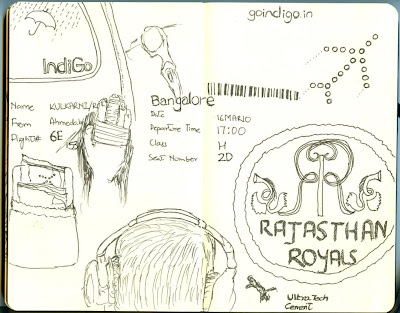 goindigo.in
IndiGo
Bangalore
Name KULKARNI/RA
From Ahmedab
Flight# 6E
Date 16MAR10
Departure Time 17:00
Class H
Seat Number 2D
RAJASTHAN
ROYALS
UltraTech
Cement